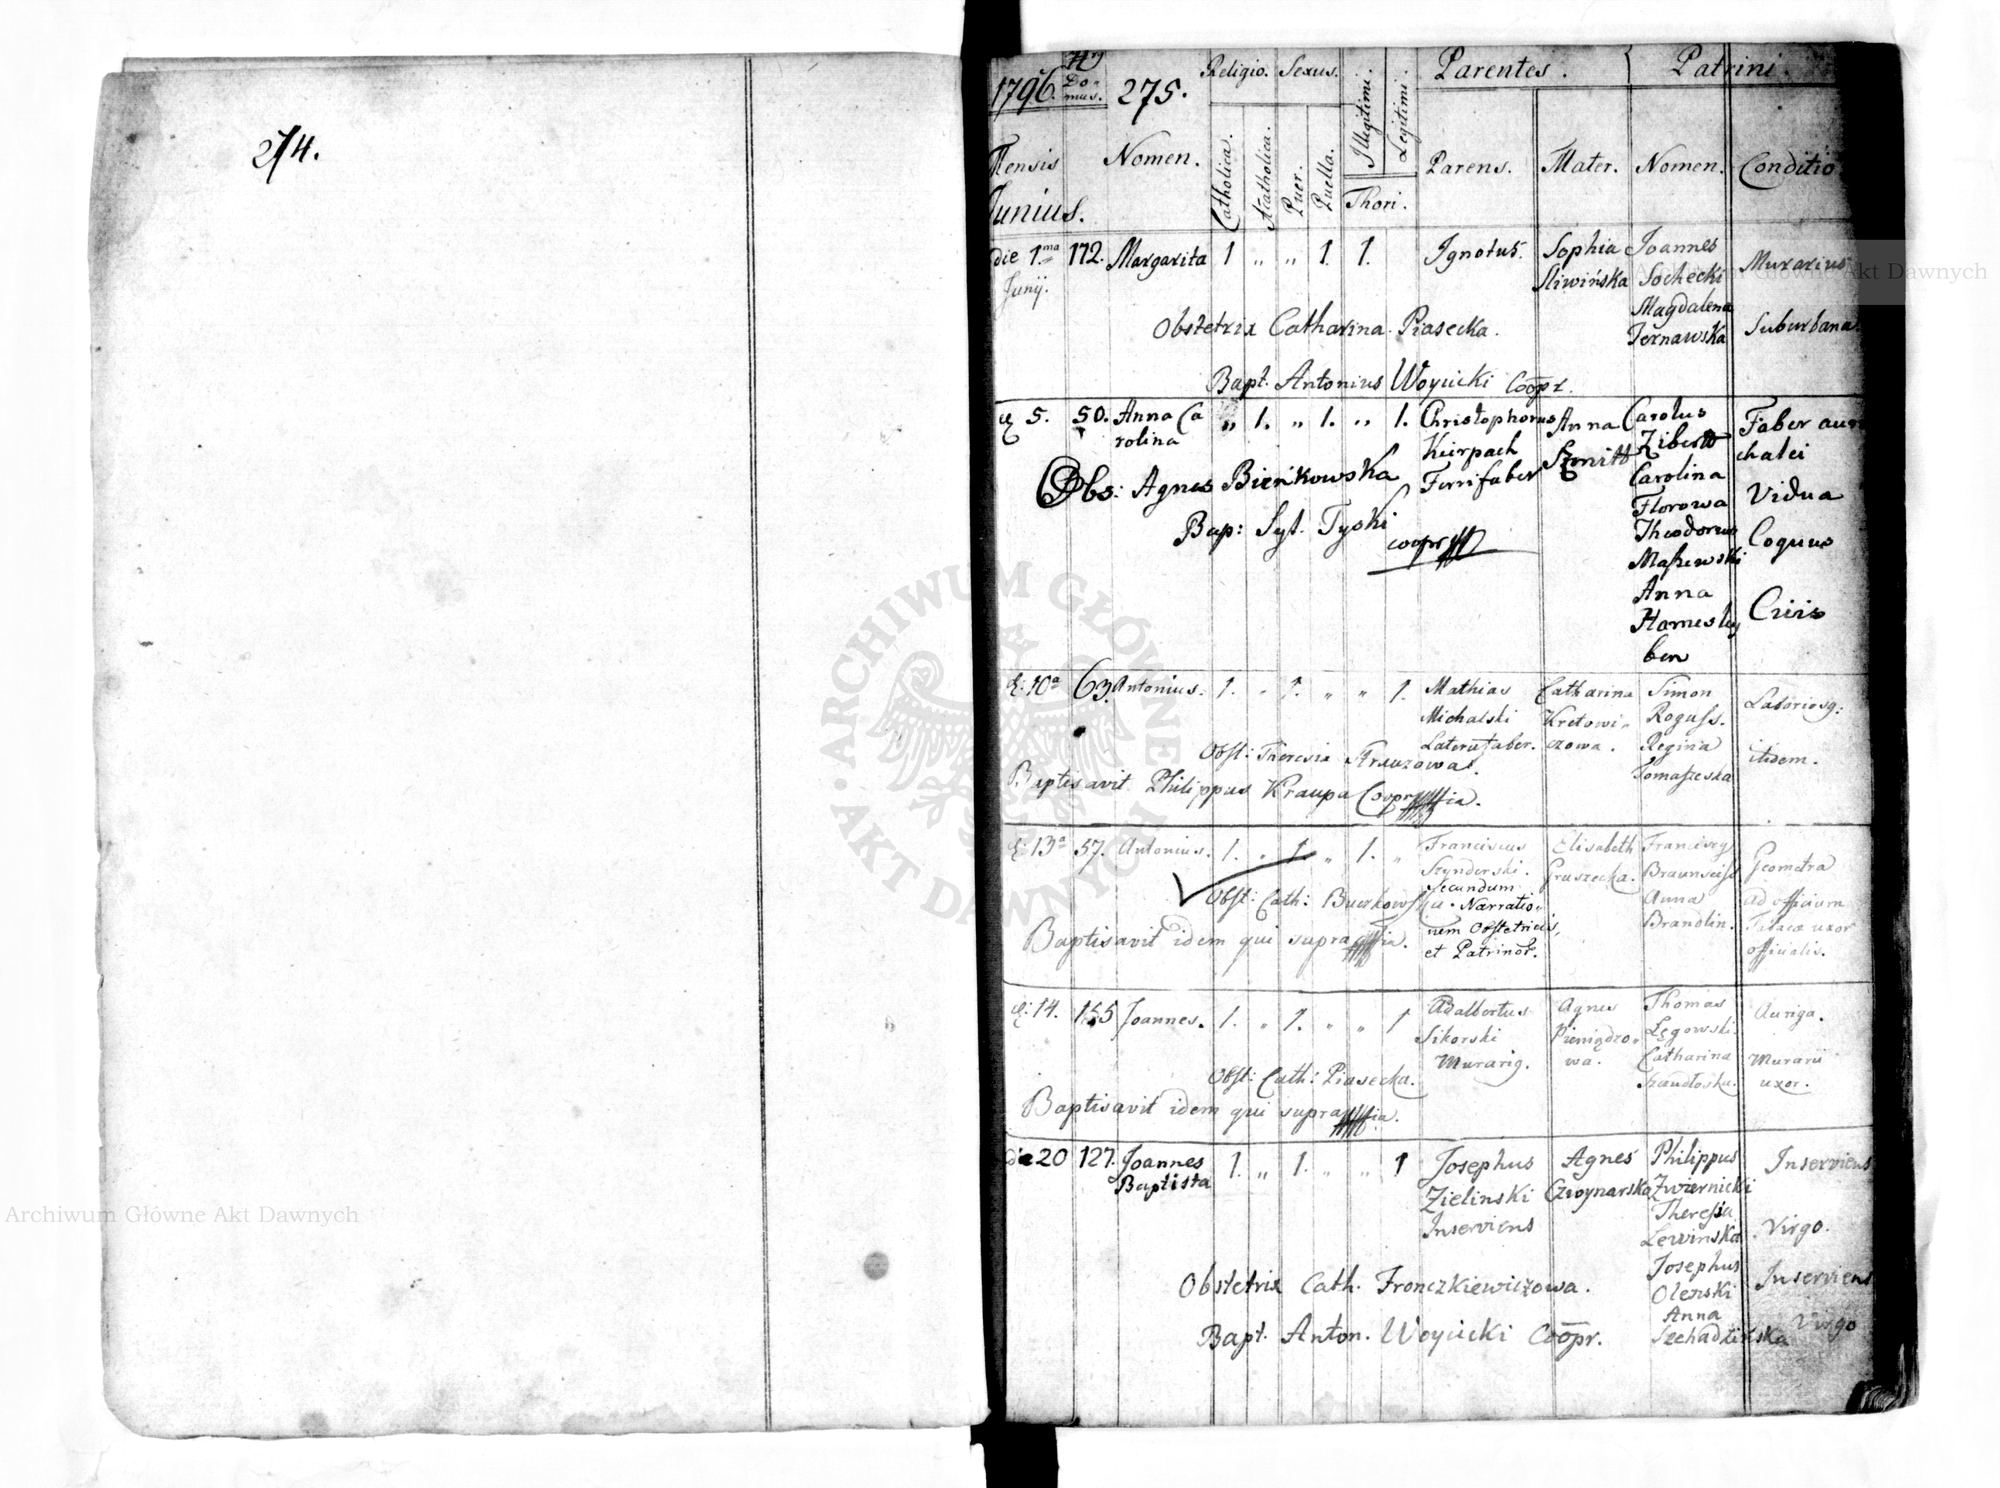 274.
1796. Nrus Domus. 275. Religio. Sexus. Illegitimi. Legitimi. Parentes. Patrini.
Mensis Nomen. Catholica. Acatholica. Puer. Puella. Thori. Parens. Mater. Nomen. Conditio
Junius.
die 1.ma 172. Margarita 1 " " 1. 1. Ignotus. Sophia Joannes Murarius
Junij. Sliwińska Sochecki
Magdalena
Obstetrix Catharina Piasecka. Suburbana
Bapt. Antonius Woyucki Coōpr.
5. 50. Anna Ca " 1. " 1. " 1. Christophorus Anna Carolus Faber auri
rolina Keirpach Szmitt Zibertt chalei
Obs: Agnes Bieńkowska Ferrifaber Carolina
Florowa Vidua
Bap: Syl. Tyski coopr Theodorus Coquus
Maszewski
Anna
Civis
ben
d: 10a 63. Antonius. 1. " 1. " " 1. Mathias Catharina Simon
Michalski Kretowi- Roguss. Laboriosq:
Obst: Theresia Laterufaber. czowa. Regina
itidem.
Baptisavit Philippus Kraupa Coopr Tomaszeska
d: 13a 57. Antonius. 1. " 1. " 1. " Franciscus Elisabeth Francisq Geometra
Szynderski. Gruszecka.
Obst: Cath: Secundum Anna ad officium
Narratio- Brandlin. uxor
Baptisavit idem qui supra nem Obstetricis, officialis.
et Patrinor.
d: 14. 155 Joannes. 1. " 1. " " 1 Adalbertus Agnes Thomas Auriga.
Sikorski Pieniądzo- Łęgowski.
Murariq. wa. Catharina Murarii
Obst: Cath: Piasecka. uxor.
Baptisavit idem qui supra
die 20 127. Joannes 1. " 1. " " 1 Josephus Agnes Philippus Inserviens
Baptista Zielinski Czwynarska Zwiernicki
Inserviens Theresia
Lewinska Virgo.
Josephus Inserviens
Obstetrix Cath. Fronczkiewiczowa. Olenski
Anna Virgo
Bapt. Anton. Woyucki Coōpr. Szchadzińska
Archiwum Główne Akt Dawnych
Archiwum Główne Akt Dawnych
ARCHIWUM GŁÓWNE AKT DAWNYCH